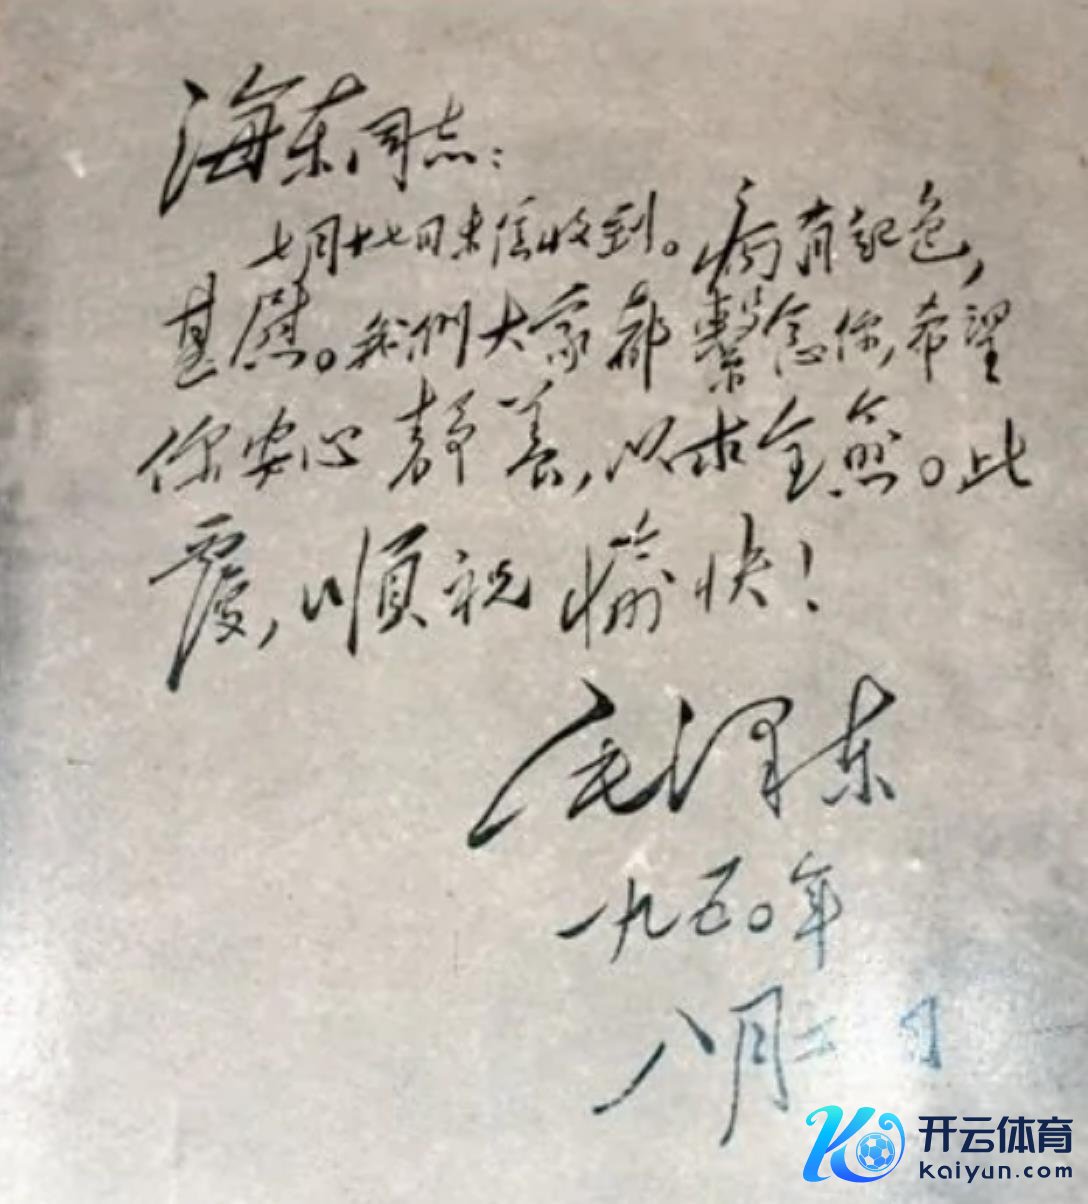 海东同志：
七月廿七日来信收到。病有起色，
甚慰。我们大家都繫念你，希望
你安心静养，以求全愈。此
覆，順祝愉快！
毛泽东
一九五〇年
八月 日
开云体育
kaiyun.com